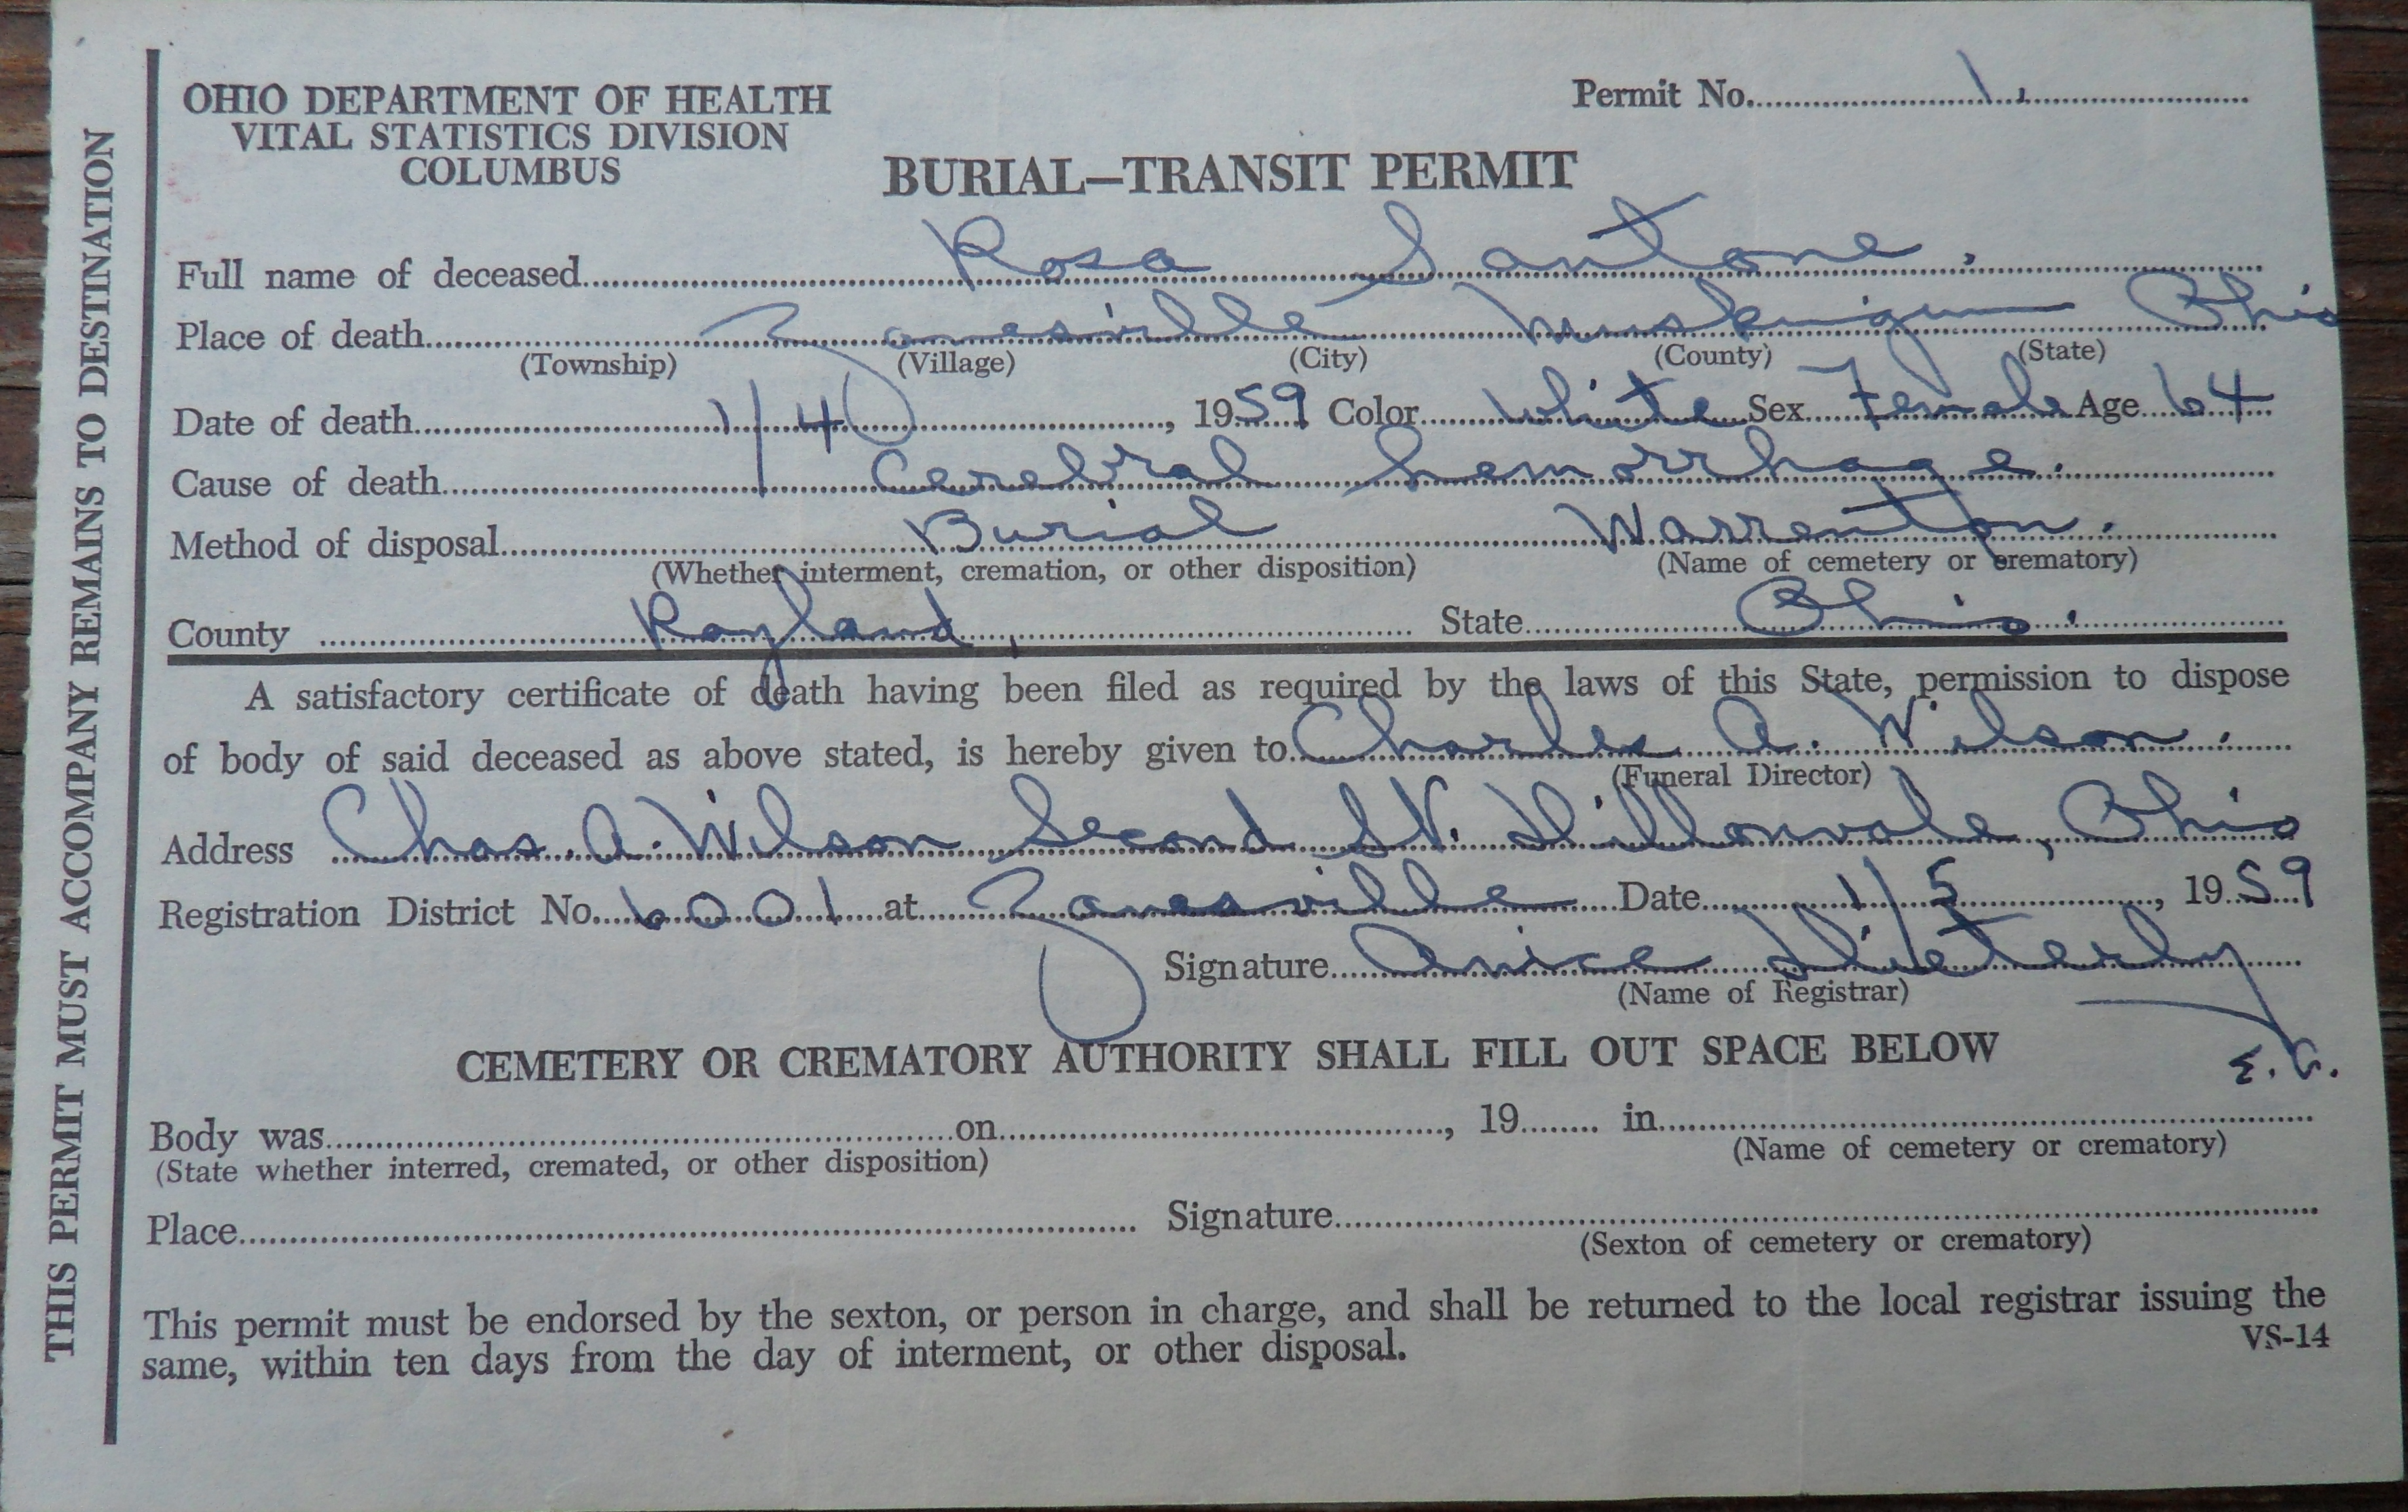 THIS PERMIT MUST ACCOMPANY REMAINS TO DESTINATION
OHIO DEPARTMENT OF HEALTH
VITAL STATISTICS DIVISION
COLUMBUS
Permit No. 1.
BURIAL—TRANSIT PERMIT
Full name of deceased Rosa Santone.
Place of death Zanesville Muskingum Ohio
(Township) (Village) (City) (County) (State)
Date of death 1/4, 1959 Color White Sex Female Age 64
Cause of death Cerebral hemorrhage.
Method of disposal Burial Warrenton.
(Whether interment, cremation, or other disposition) (Name of cemetery or crematory)
County Rayland, State Ohio.
A satisfactory certificate of death having been filed as required by the laws of this State, permission to dispose
of body of said deceased as above stated, is hereby given to Charles A. Wilson.
(Funeral Director)
Address Chas. A. Wilson Second St. Dillonvale, Ohio
Registration District No. 6001 at Zanesville Date 1/5, 1959
Signature Anice
(Name of Registrar)
E. G.
CEMETERY OR CREMATORY AUTHORITY SHALL FILL OUT SPACE BELOW
Body was on, 19 in
(State whether interred, cremated, or other disposition) (Name of cemetery or crematory)
Place Signature
(Sexton of cemetery or crematory)
This permit must be endorsed by the sexton, or person in charge, and shall be returned to the local registrar issuing the
same, within ten days from the day of interment, or other disposal.
VS-14